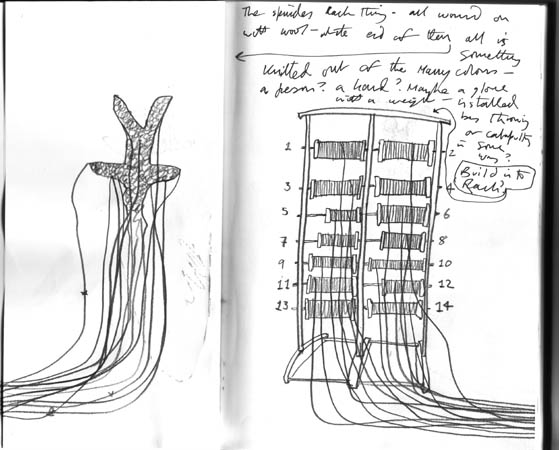 The spindles Rack Thing - all wound on
with wool - at the end of them all is
something
Knitted out of the Many colours -
a person? a hand? Maybe a glove
with a weight - installed
throwing
or catapults
in some
way?
Build in to
Racking
1
2
3
4
5
6
7
8
9
10
11
12
13
14